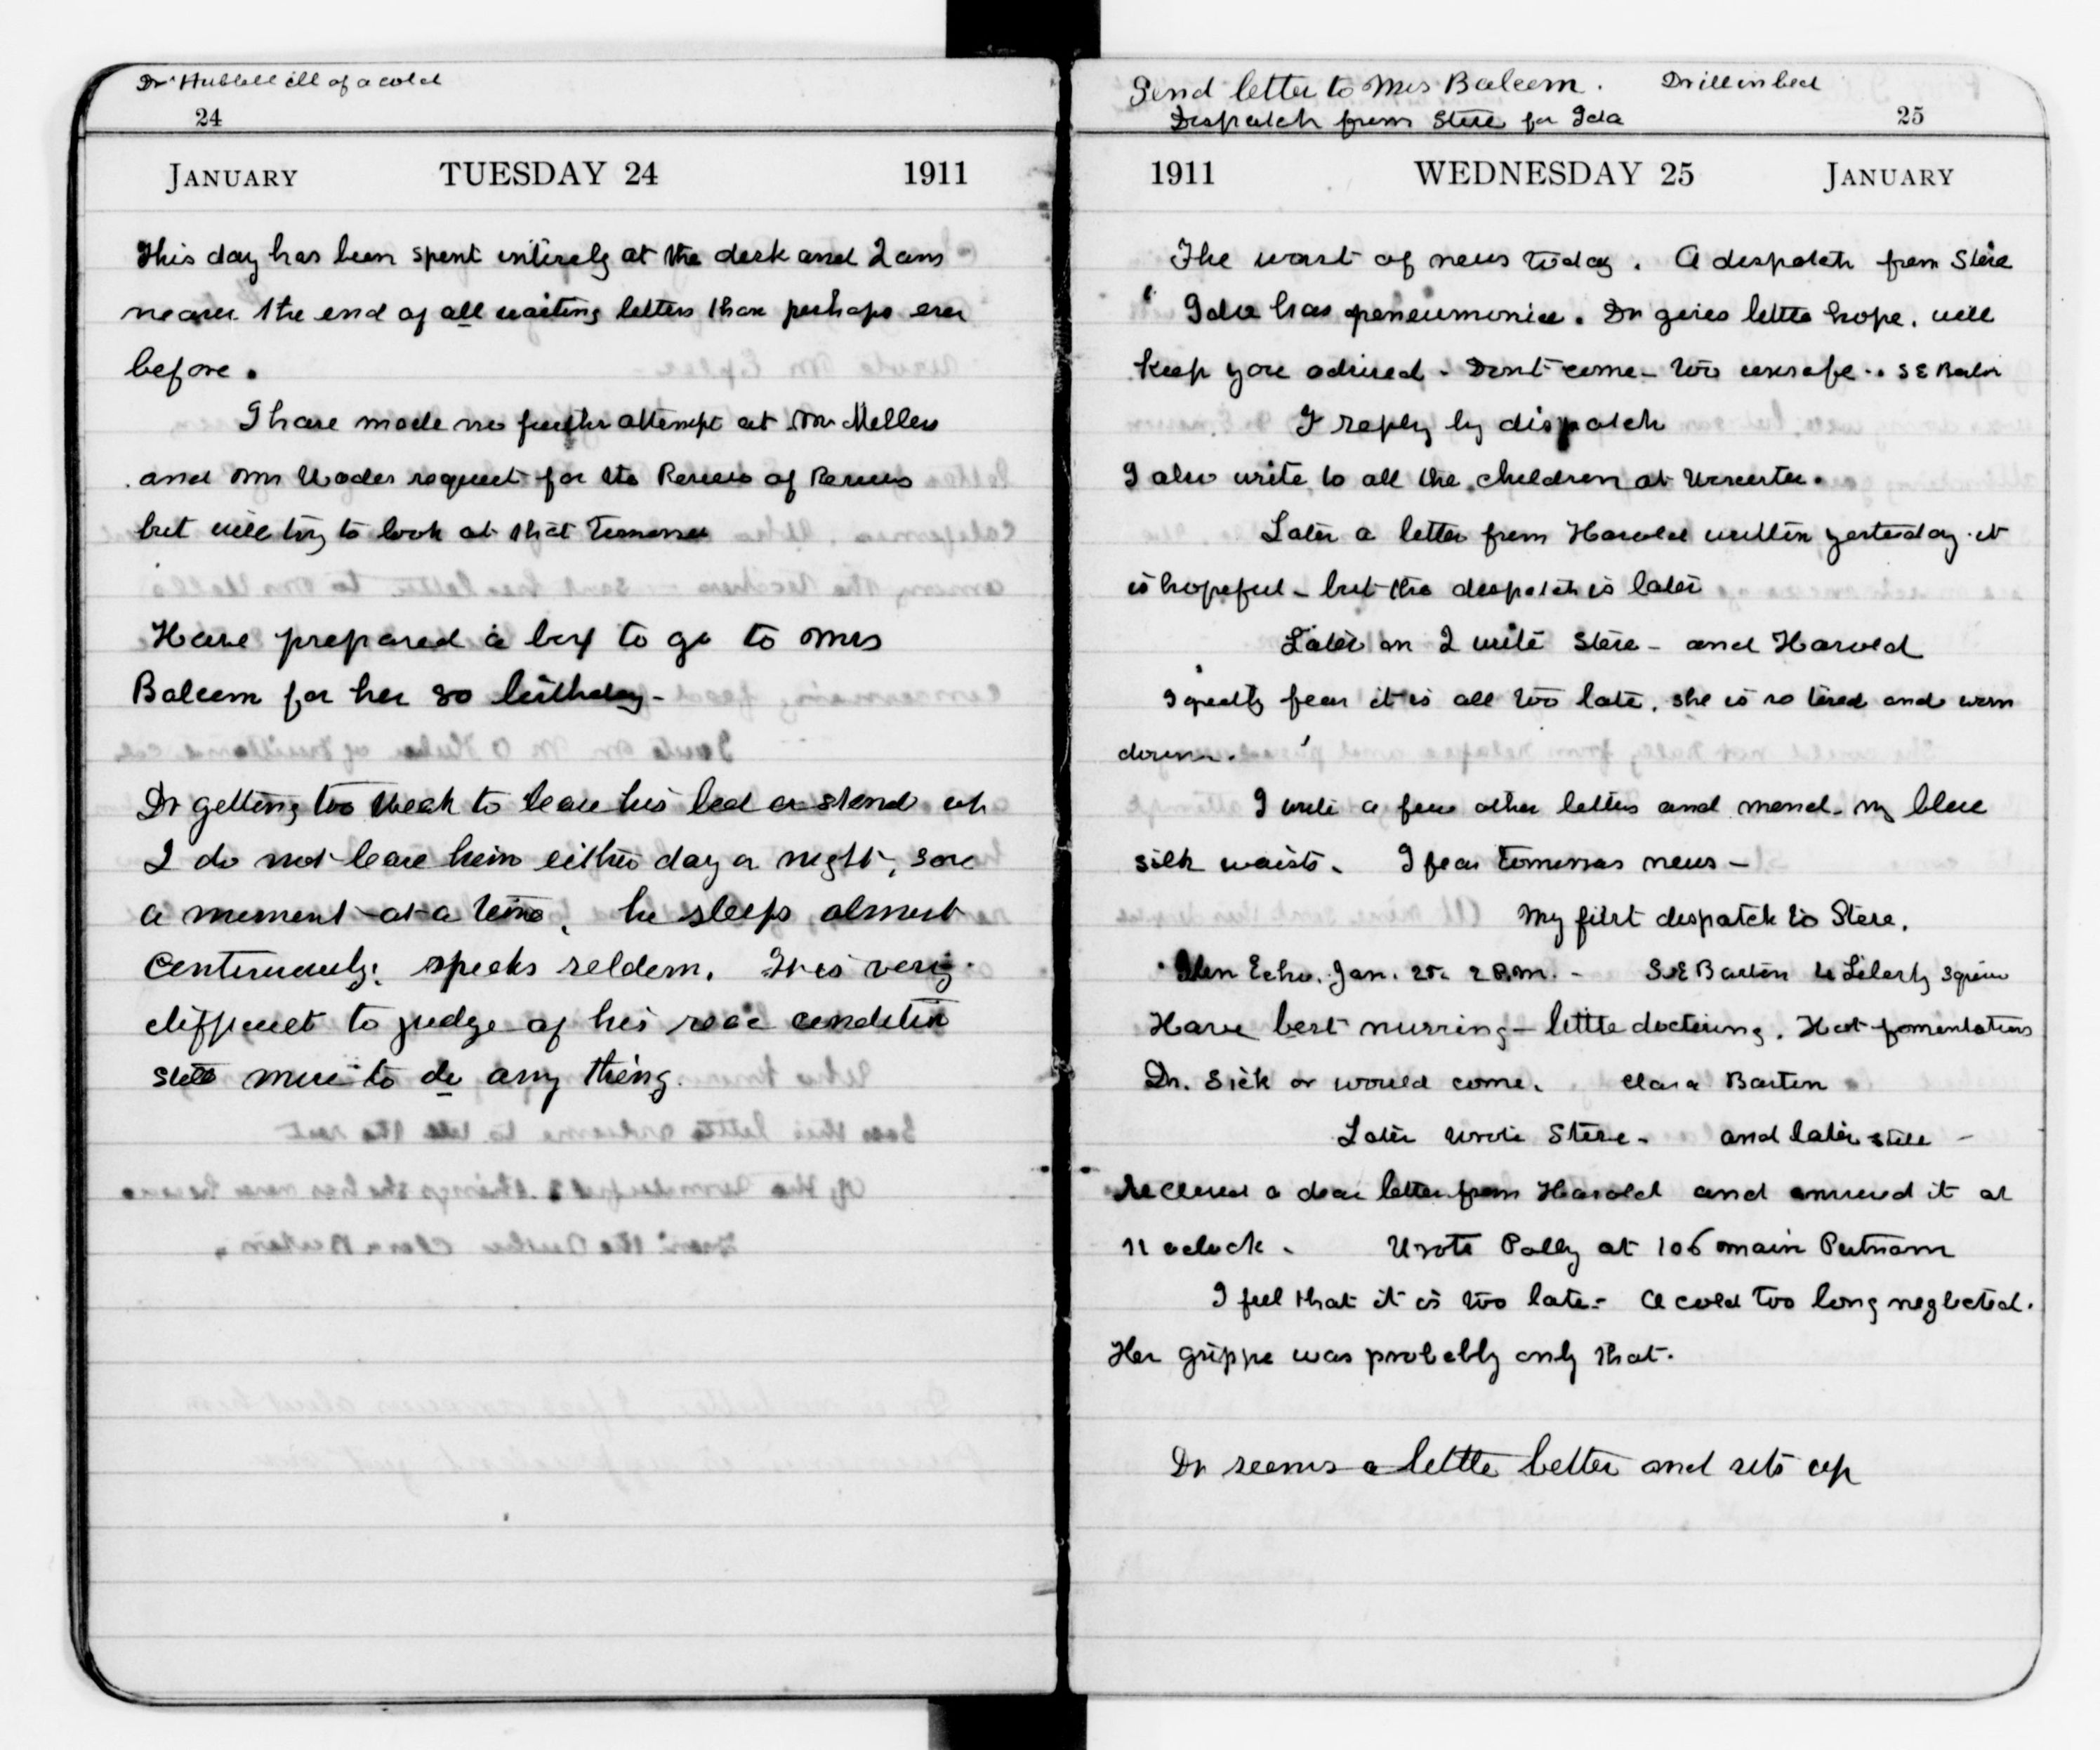 Dr Hubbell ill of a cold
24
JANUARY TUESDAY 24 1911
This day has been spent entirely at the desk and I am
nearer the end of all waiting letters than perhaps ever
before.
I have made no further attempt at Mr
and Mrs request for the Review of Reviews
but will try to look at that tomorrow
Have prepared a box to go to Mrs
Balcom for her 80 birthday -
Dr getting too weak to leave his bed or stand up
I do not leave him either day or night, save
a moment at a time, he sleeps almost
continually, speaks seldom. It is very
difficult to judge of his real condition
still more to do any thing.
Send letter to Mrs Balcom. Dr ill in bed
Despatch from Steve for Ida
25
1911 WEDNESDAY 25 JANUARY
The worst of news today. A despatch from Steve
" Ida has pneumonia. Dr gives little hope, will
keep you advised - Dont come - too unsafe.. S E Barton
I reply by dispatch
I also write to all the children at Worcester.
Later a letter from Harold written yesterday it
is hopeful - but the despatch is later
Later on I write Steve - and Harold
I greatly fear it is all too late, she is so tired and worn
down.
I write a few other letters and mend my blue
silk waists. I fear tomorrows news -
My first despatch to Steve.
Glen Echo. Jan. 25. 2 P.m. - S.E Barton Liberty Square
Have best nursing - little doctoring. Hot fomentations
Dr. sick or would come. Clara Barton
Later wrote Steve - and later still -
Received a dear letter from Harold and answered it at
11 oclock - Wrote Polly at 106 main Putnam
I feel that it is too late - A cold too long neglected.
Her grippe was probably only that.
Dr seems a little better and sits up